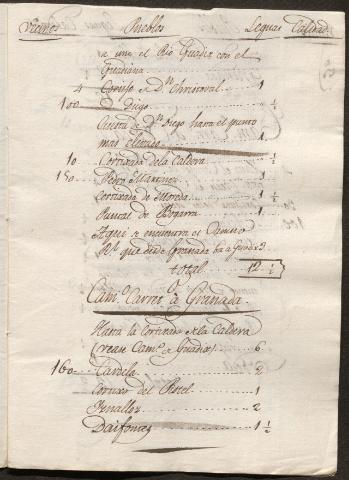 Vecinos Pueblos Leguas Calidad
se une el Rio Guadix con el
Guadiana
4 Cortijo de Dn. Christoval 1
100 D. Diego ½
Cuesta de Dn. Diego hasta el punto
mas elevado 1
10 Cortixada de la Caldera ½
150 Pedro Martinez 1
Cortixada de Moreda 1 ½
Puntal de Bogarra 1
Aqui se encuentra el Camino
Rl. que desde Granada ba a Guadix
total 12 ½
Cam.o Carret.o a Granada
Hasta la Cortixada de la Caldera
(vease Cam.o de Guadix) 6
160 Cardela 2
Cortixo del Rosel 1
Yznalloz 2
Daifontes 1 ½